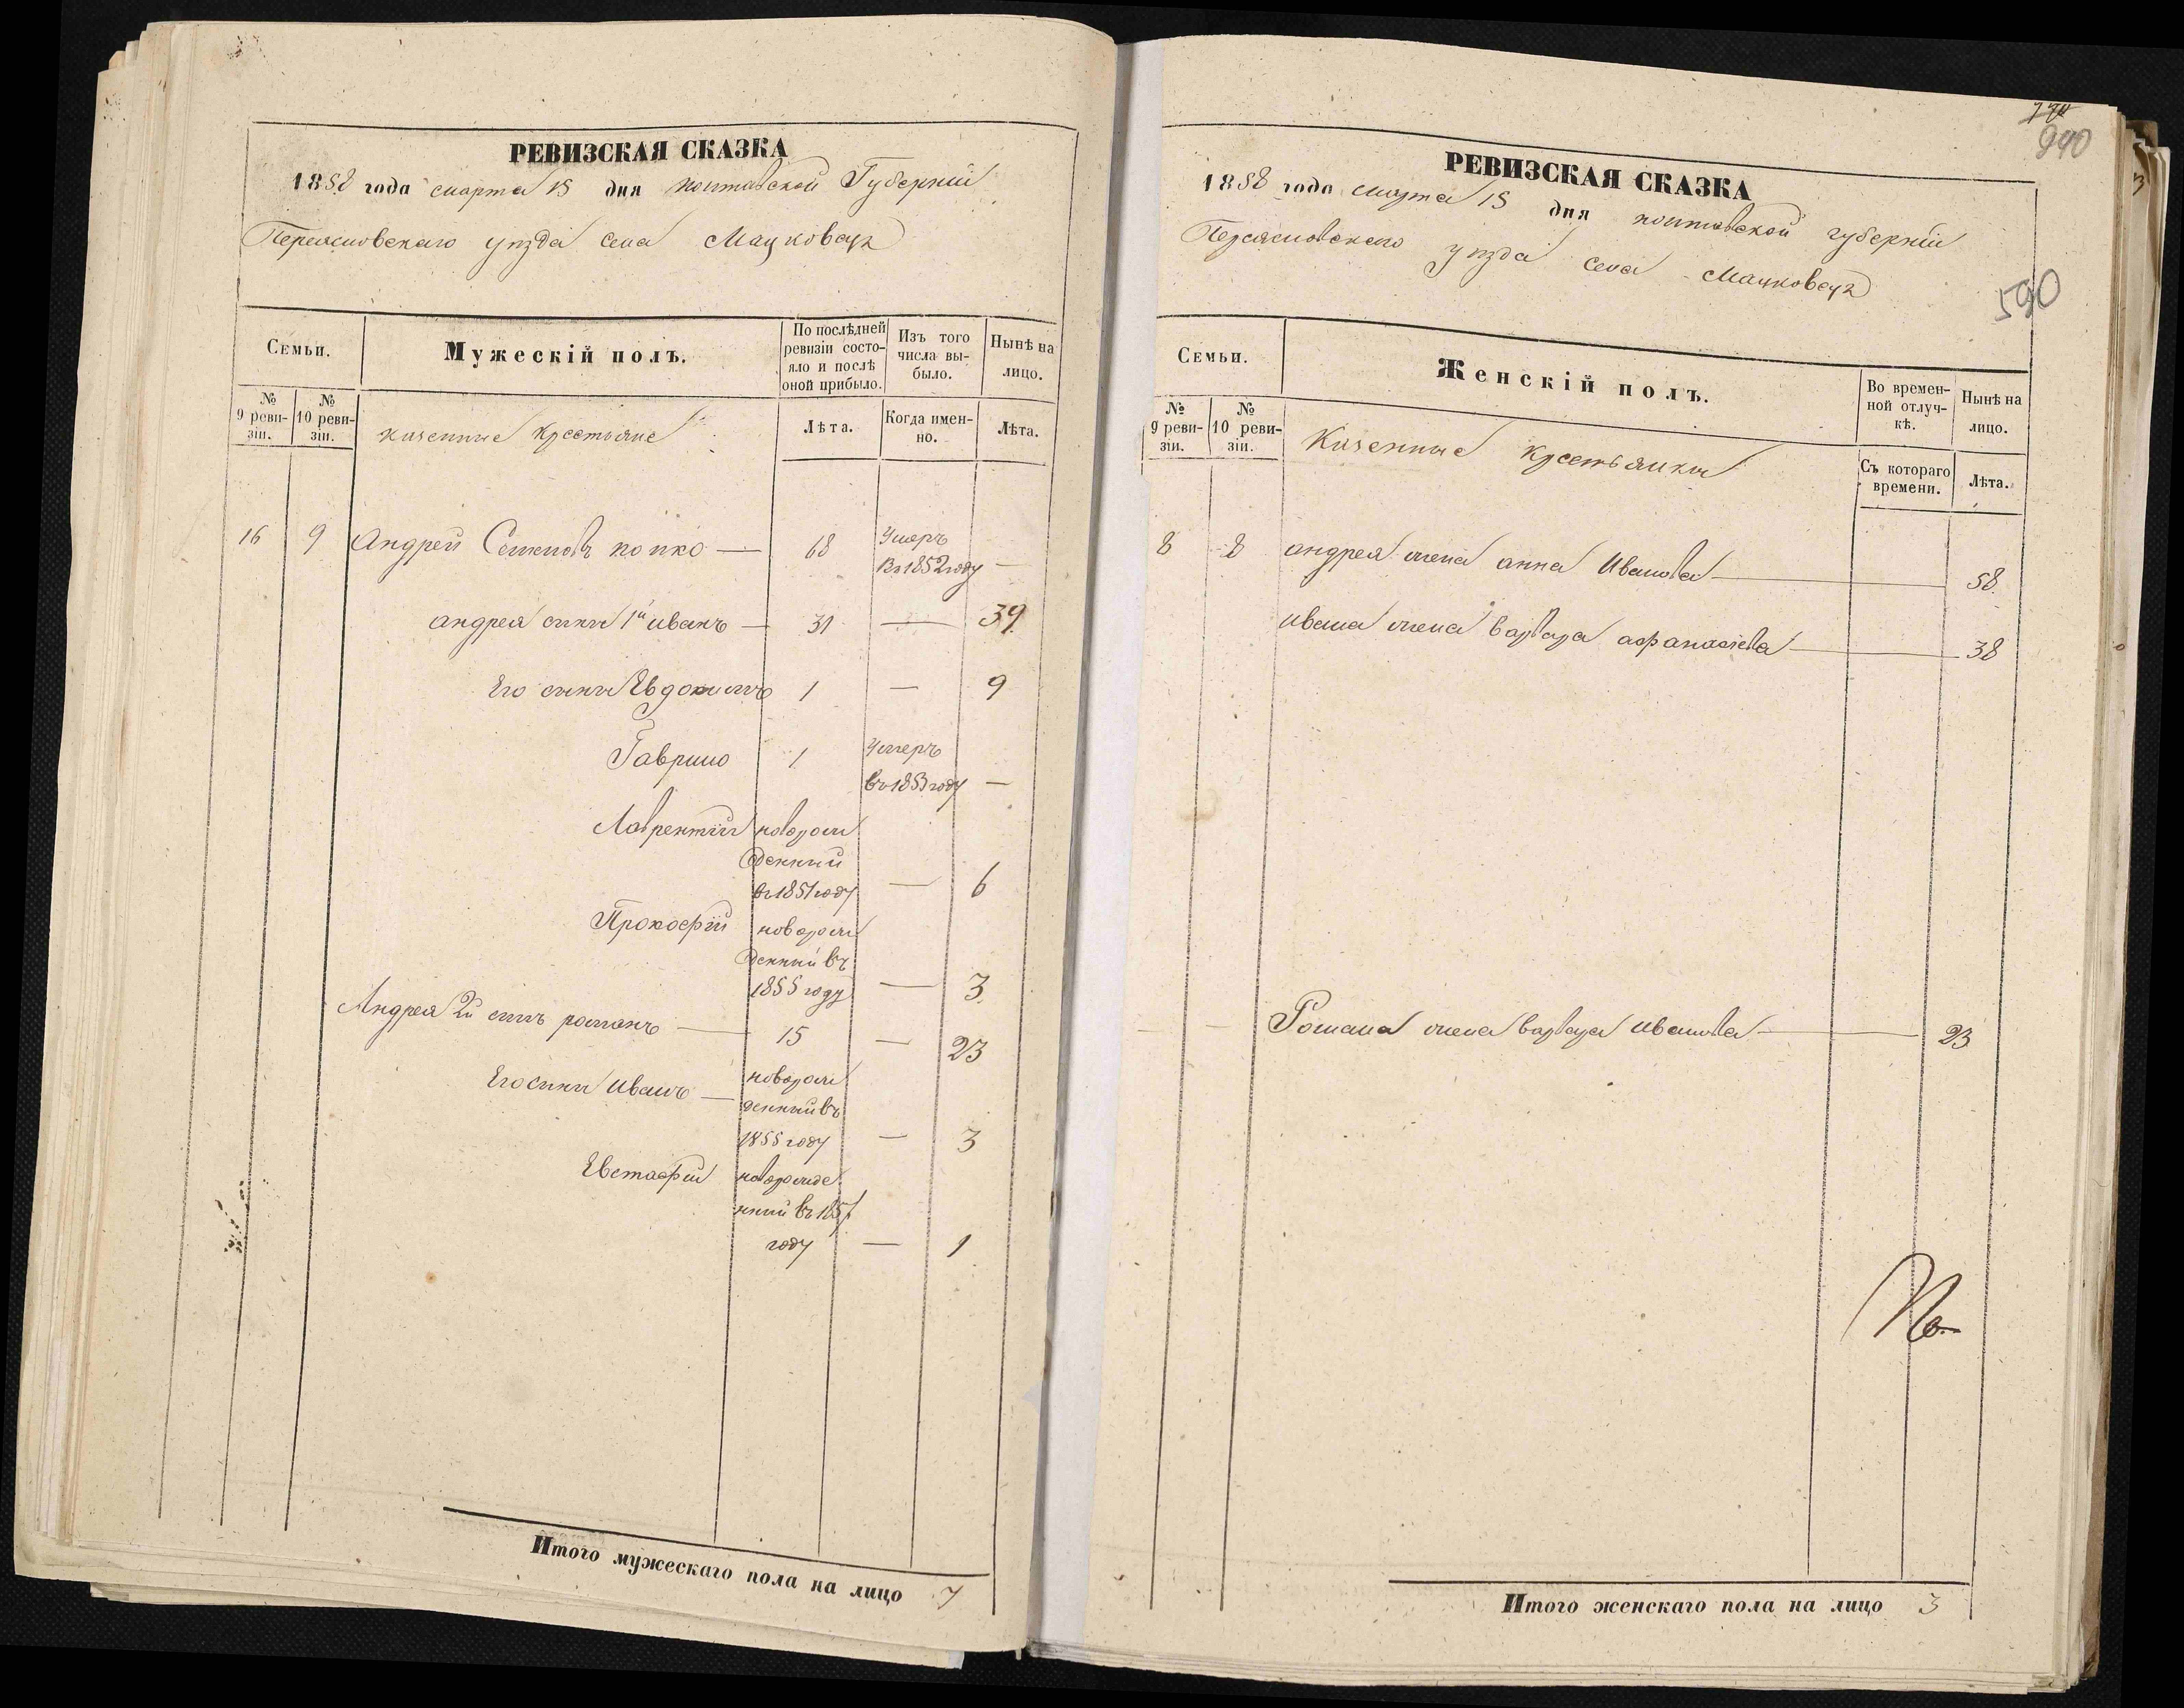 РЕВИЗСКАЯ СКАЗКА
1858 года марта 15 дня полтавской Губерніи
Переясловскаго уѣзда села Мацковецъ
Семьи.
Мужескій полъ.
По послѣдней ревизіи состояло и послѣ оной прибыло.
Изъ того числа выбыло.
Нынѣ на лицо.
№ 9 ревизіи.
№ 10 ревизіи.
казенные крестьяне
Лѣта.
Когда именно.
Лѣта.
16 9 Андрей Семеновъ — 68 Умеръ
въ 1852 году —
андрея сыны 1й иванъ — 31 — 39
Его сыны Евдокимъ 1 — 9
Гаврило 1 Умеръ
въ 1853 году —
Лаврентій новорож
денный
въ 1851 году — 6
Прокофій новорож
денный въ
1855 году — 3
Андрея 2й сынъ романъ — 15 — 23
Его сыны Иванъ — новорож
денный въ
1855 году — 3
Евстафій новорожде
нный въ 1857
году — 1
Итого мужескаго пола на лицо 7
940
590
РЕВИЗСКАЯ СКАЗКА
1858 года марта 15 дня полтавской губерніи
Переясловскаго уѣзда села Мацковецъ
Семьи.
Женскій полъ.
Во временной отлучкѣ.
Нынѣ на лицо.
№ 9 ревизіи.
№ 10 ревизіи.
Казенные крестьянки
Съ котораго времени.
Лѣта.
8 8 андрея жена анна Иванова — 58
ивана жена варвара афанасіева — 38
Романа жена варвара иванова — 23
Итого женскаго пола на лицо 3